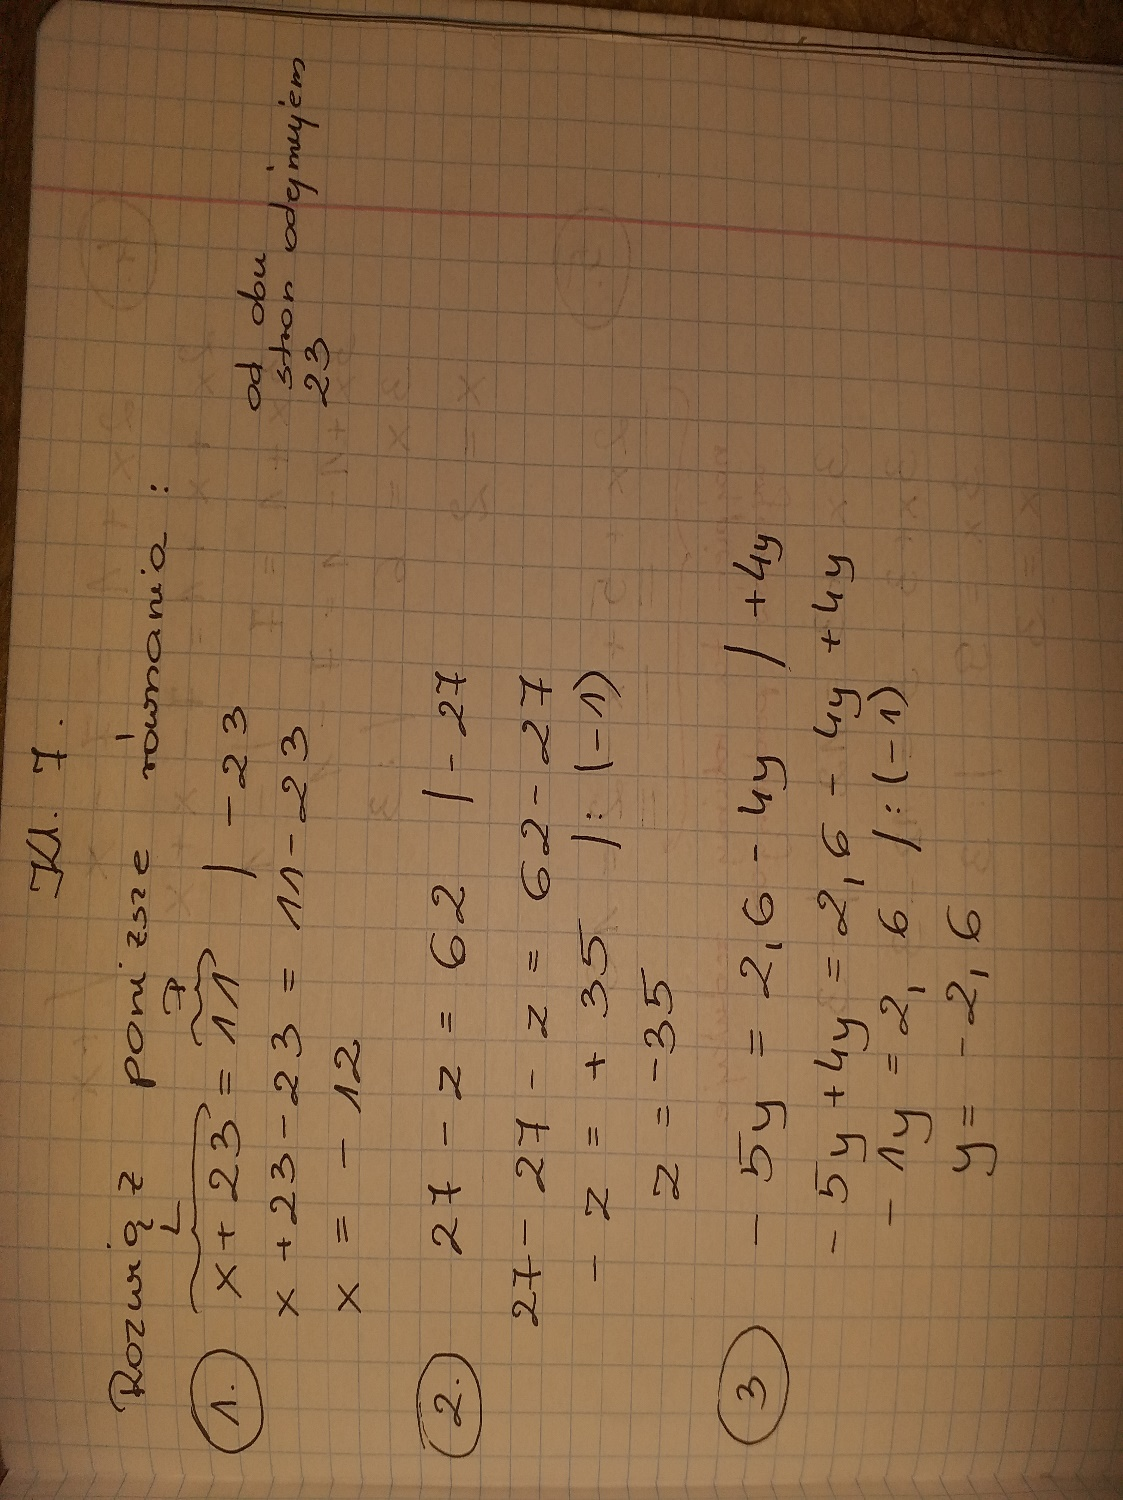 Kl. 7.
Rozwiąż poniższe równania:
L P
1. x + 23 = 11 | - 23
od obu
stron odejmujem
23
x + 23 - 23 = 11 - 23
x = - 12
2. 27 - z = 62 | - 27
27 - 27 - z = 62 - 27
- z = + 35 | : (-1)
z = -35
3 - 5y = 2,6 - 4y | + 4y
- 5y + 4y = 2,6 - 4y + 4y
- 1y = 2,6 | : (-1)
y = - 2,6